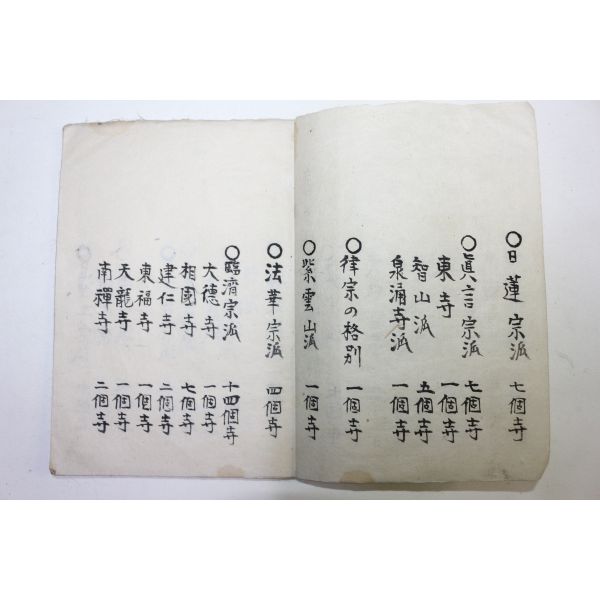 〇日蓮宗派 七個寺
〇眞言宗派 七個寺
東寺 一個寺
智山派 五個寺
泉涌寺派 一個寺
〇律宗の格別 一個寺
〇紫雲山派 一個寺
〇法華宗派 四個寺
〇臨濟宗派 十四個寺
大德寺 一個寺
相國寺 七個寺
建仁寺 二個寺
東福寺 一個寺
天龍寺 一個寺
南禪寺 二個寺